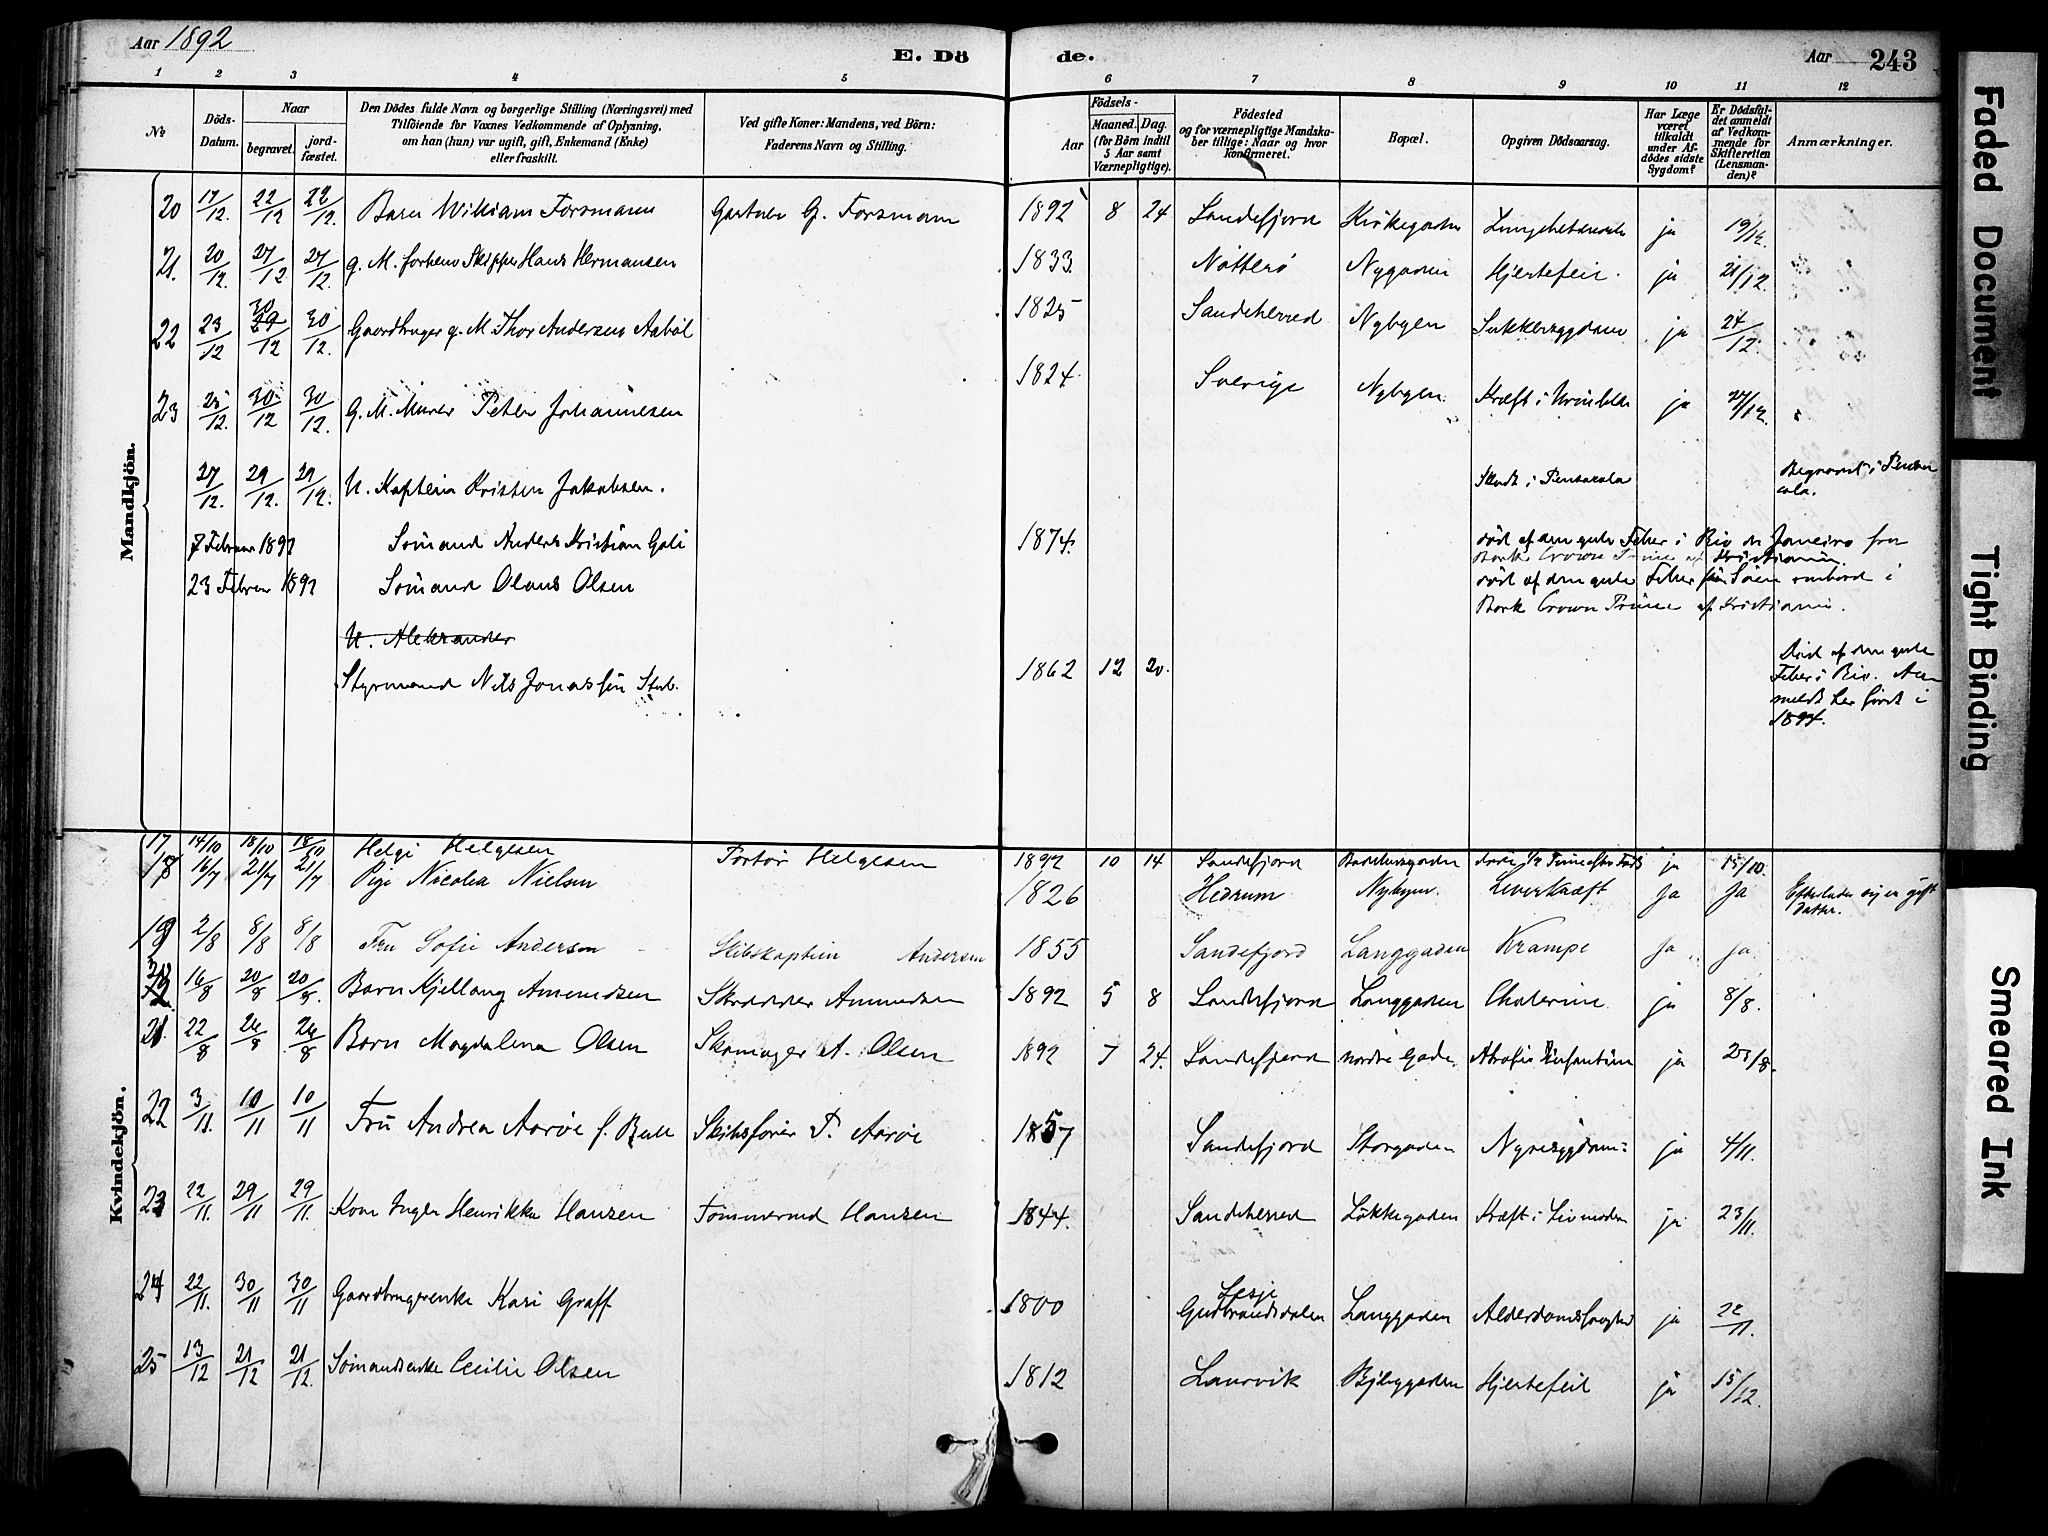 Aar 1892
E. Dö de.
Aar 243
1 2 3 4 5 6 7 8 9 10 11 12
No
Döds-Datum.
Naar begravet. jordfæstet.
Den Dödes fulde Navn og borgerlige Stilling (Næringsvei) med
Tilföiende for Voxnes Vedkommende af Oplysning,
om han (hun) var ugift, gift, Enkemand (Enke)
eller fraskilt.
Ved gifte Koner: Mandens, ved Börn:
Faderens Navn og Stilling.
Födsels-
Aar Maaned. Dag.
(for Börn indtil
5 Aar samt
Værnepligtige).
Födested
og for værnepligtige Mandska-
ber tillige: Naar og hvor
konfirmeret.
Bopæl.
Opgiven Dödsaarsag.
Har Læge
været
tilkaldt
under Af-
dödes sidste
Sygdom?
Er Dödsfal-
det anmeldt
af Vedkom-
mende for
Skifteretten
(Lensman-
den)?
Anmærkninger.
Mandkjön.
20 17/12. 22/12 22/12. Barn William Forsmann Gartner G. Forsmann 1892 8 24 Sandefjord Kirkegaden ja 19/12.
21. 20/12. 27/12 27/12. g. M. forhenv Skipper Hans Hermansen 1833. Nötterö Nygaden Hjertefeil. ja 21/12.
22 23/12 30 29/12 30/12. Gaardbruger g. M. Thor Andersen Aaböl 1825 Sandeherred Nybyen Sukkersygdom ja 24/12.
23 25/12. 30/12 30/12. G. M. Murer Peter Johannesen 1824. Sverige Nybyen. Kræft i ja 27/12.
27/12. 29/12. 29/12. U. Kaptein Kristen Jakobsen. i Pensacola Begravet i Pensa
cola.
7 Februar 1892 Sömand Anders Kristian Goli 1874. död af den gule Feber i Rio de Janeiro fra
Bark Crown Prince af Kristiania.
23 Februar 1892 Sömand Olaus Olsen död af den gule Feber Söen ombord i
Bark Crown Prince af Kristiania.
U. Aleksander
Styrmand Nils Jonassön 1862 12 20. Död af den gule
Feber i Rio. An-
meldt her först i
1894.
Kvindekjön.
17 14/10 18/10 18/10 Helga Helgesen Helgesen 1892 10 14 Sandefjord ja 15/10.
18 16/7 21/7 21/7 Pige Nicolea Nielsen 1826 Hedrum Nybyen. Leverkræft Ja Ja Efterlader sig en gift
Datter.
19 2/8 8/8 8/8 Fru Sofie Andersen Skibskaptein Andersen 1855 Sandefjord Langgaden Krampe Ja ja
16/8 20/8 20/8. Barn Kjellaug Amundsen Skrædder Amundsen 1892 5 8 Sandefjord Langgaden Cholerine ja 8/8.
21. 22/8 26/8 26/8 Barn Magdalena Olsen Skomager A. Olsen 1892 7 24. Sandefjord Nordre Gade. Atrofia infantum ja 23/8.
22 3/11. 10/11 10/11 Fru Andrea Aaröe f. Bull Skibsförer P. Aaröe 1857 Sandefjord Storgaden Nyresygdom ja 4/11.
23 22/11. 29/11 29/11. Kone Inger Henrikke Hansen Tömmermd Hansen 1844. Sandeherred Lökkegaden Kræft i Livmoder ja 23/11.
24 22/11. 30/11 30/11 Gaardbrugerenke Kari Graff 1800 Lesje
Gudbrandsdalen Langgaden Alderdomssvaghed ja 22/11.
25 13/12 21/12 21/12. Sömandsenke Cecilie Olsen 1812 Laurvik Bjerggaden Hjertefeil ja 15/12.
Faded Document
Tight Binding
Smeared Ink